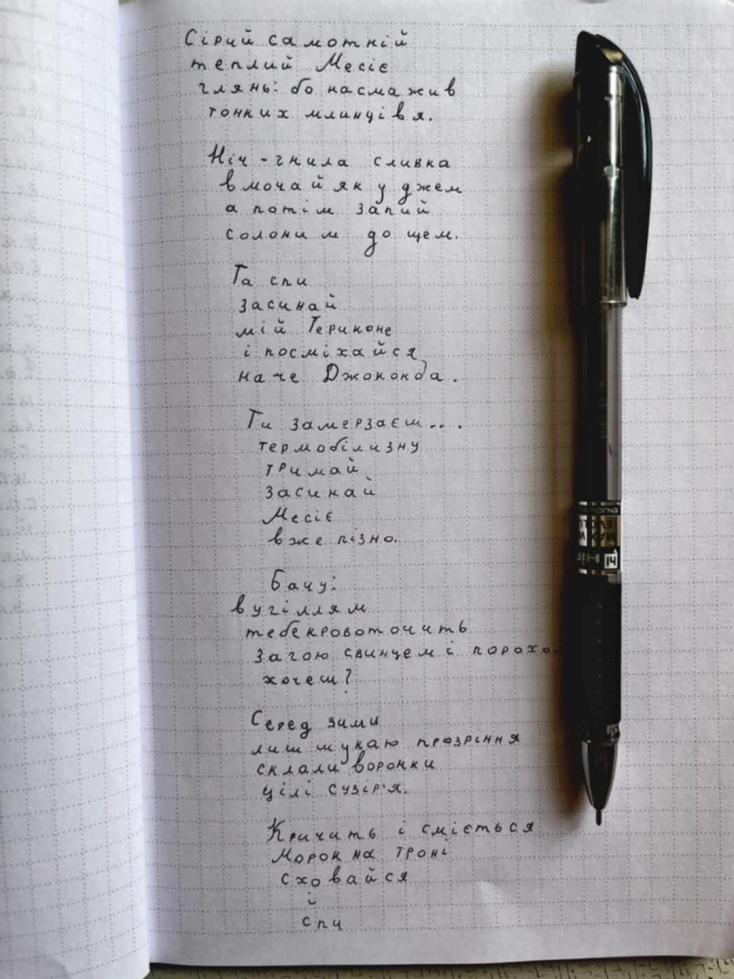 Сірий самотній
теплий Месіє
глянь: бо насмажив
тонких млинців я.
Ніч - гнила сливка
вмочай як у джем
а потім запий
солоним дощем.
Та спи
засинай
мій Териконе
і посміхайся,
наче Джоконда.
Ти замерзаєш...
термобілизну
тримай
засинай
Месіє
вже пізно.
Бачу:
вугіллям
тебе кровоточить
Загою свинцем і порохо
хочеш?
Серед зими
лиш шукаю прозріння
склали воронки
цілі сузір'я.
Кричить і сміється
Морок на троні
сховайся
і
спи